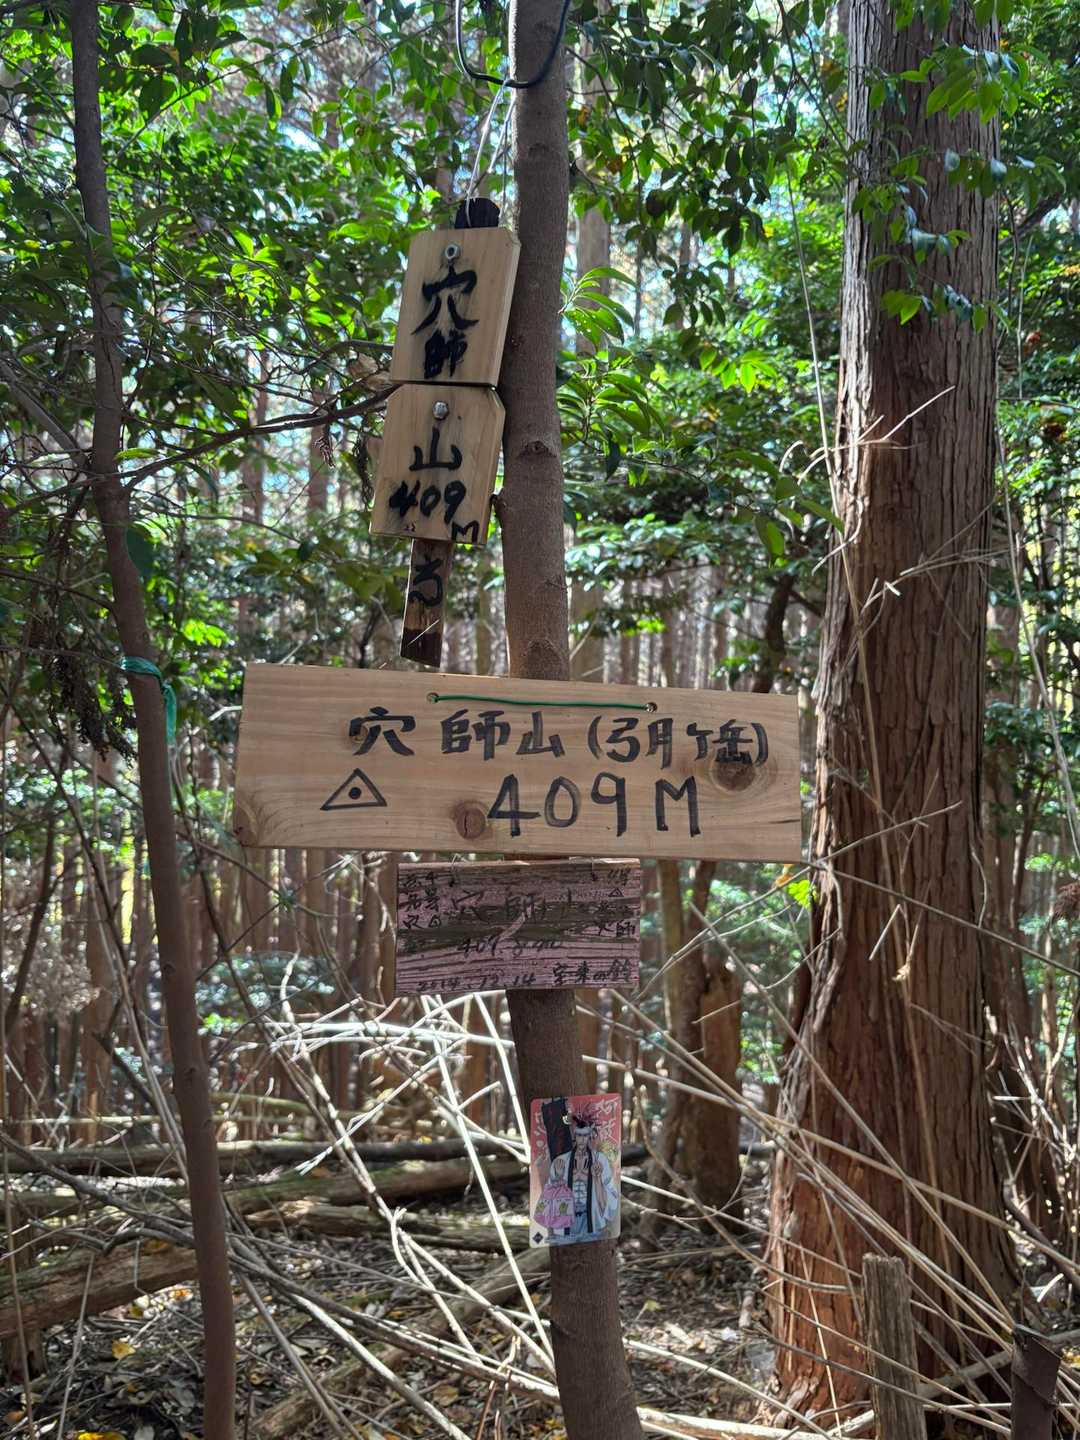 穴師
山
409M
穴師山(弓月ヶ岳)
409M
穴師山
409.
2014.12.14